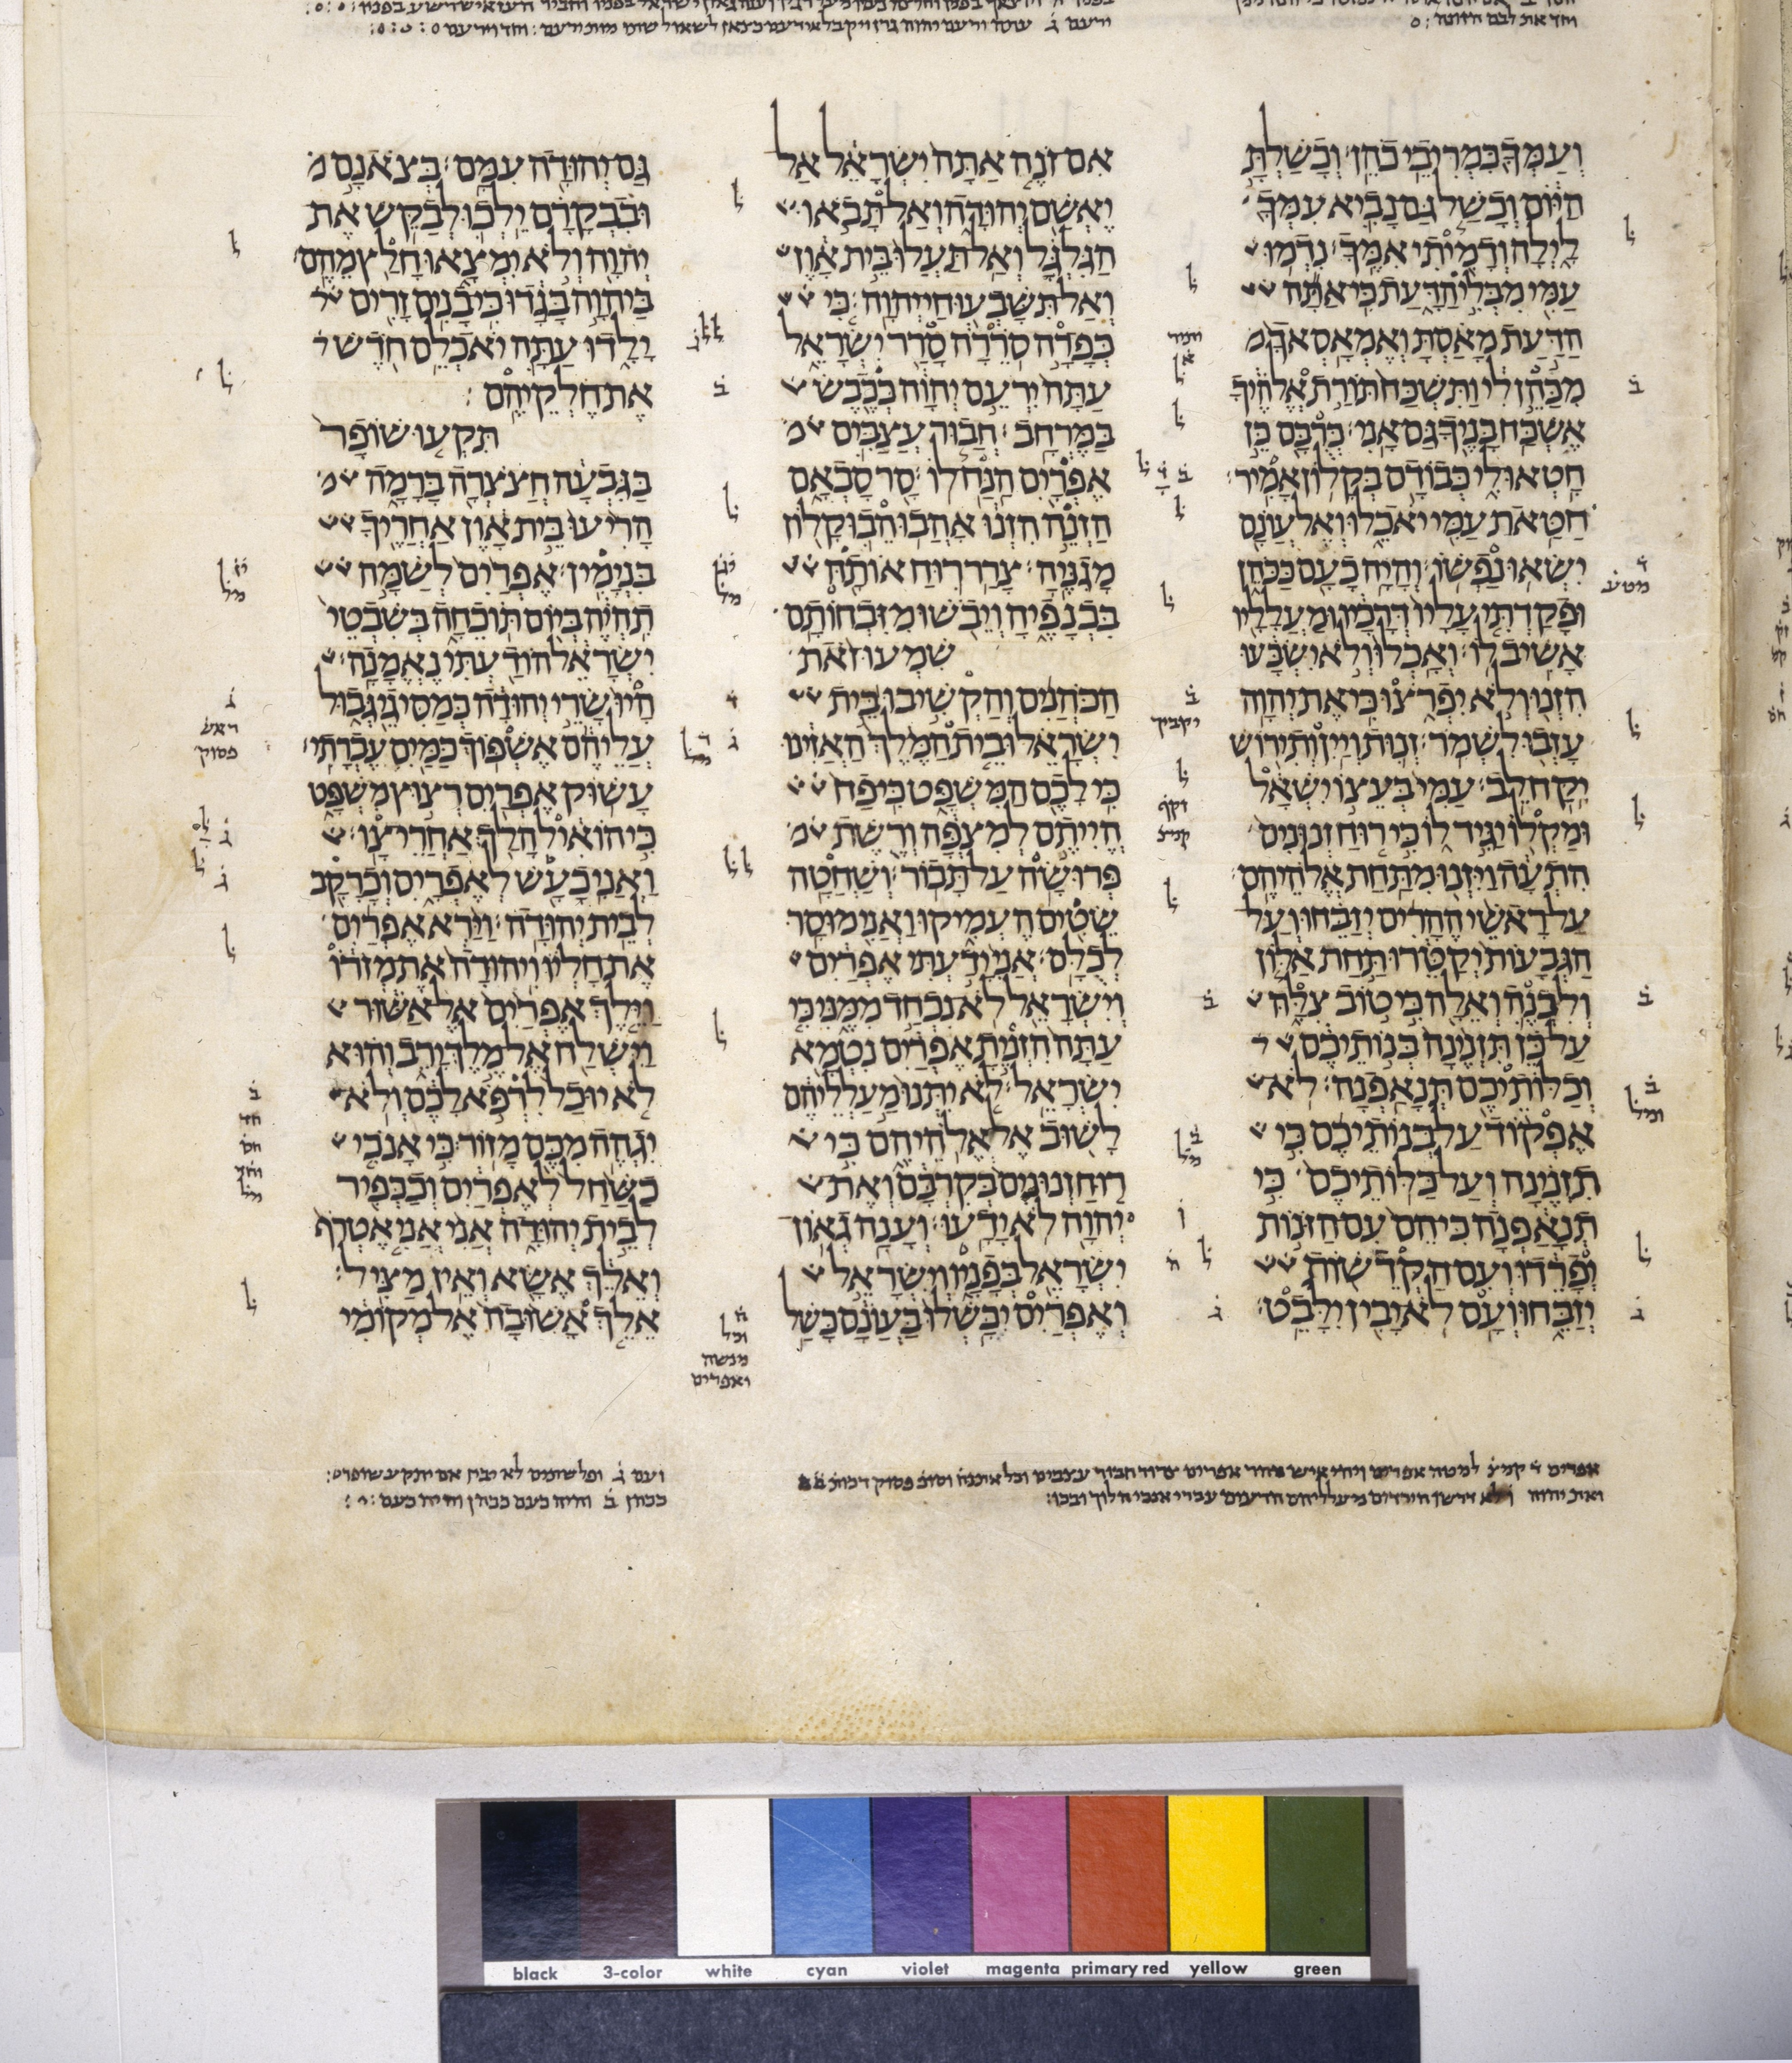 ועמך כמריבי כהן וכשלת
היום וכשל גם נביא עמך
לילה ודמיתי אמך נדמו
עמי מבלי הדעת כי אתה
הדעת מאסת ואמאסאך מ
מכהן לי ותשכח תורת אלהיך
אשכח בניך גם אני כרבם כן
חטאו לי כבודם בקלון אמיר
חטאת עמי יאכלו ואל עונם
ישאו נפשו והיה כעם ככהן
ופקדתי עליו דרכיו ומעלליו
אשיב לו ואכלו ולא ישבעו
הזנו ולא יפרצו כי את יהוה
עזבו לשמר זנות ויין ותירוש
יקח לב עמי בעצו ישאל
ומקלו יגיד לו כי רוח זנונים
התעה ויזנו מתחת אלהיהם
על ראשי ההרים יזבחו ועל
הגבעות יקטרו תחת אלון
ולבנה ואלה כי טוב צלה
על כן תזנינה בנותיכם
וכלותיכם תנאפנה לא
אפקוד על בנותיכם כי
תזנינה ועל כלותיכם כי
תנאפנה כי הם עם הזנות
יפרדו ועם הקדשות
יזבחו ועם לא יבין ילבט
אם זנה אתה ישראל אל
יאשם יהודה ואל תבאו
הגלגל ואל תעלו בית און
ואל תשבעו חי יהוה כי
כפרה סררה סרר ישראל
עתה ירעם יהוה ככבש
במרחב חבור עצבים מ
אפרים הנח לו סר סבאם
הזנה הזנו אהבו הבו קלון
מגניה צרר רוח אותה
בכנפיה ויבשו מזבחותם
שמעו זאת
הכהנים והקשיבו בית
ישראל ובית המלך האזינו
כי לכם המשפט כי פח
הייתם למצפה ורשת מ
פרושה על תבור ושחטה
שטים העמיקו ואני מוסר
לכלם אני ידעתי אפרים
וישראל לא נכחד ממני כי
עתה הזנית אפרים נטמא
ישראל לא יתנו מעלליהם
לשוב אל אלהיהם כי
רוח זנונים בקרבם ואת
יהוה לא ידעו וענה גאון
ישראל בפניו וישראל
ואפרים יכשלו בעונם כשל
גם יהודה עמם בצאנם מ
ובבקרם ילכו לבקש את
יהוה ולא ימצאו חלץ מהם
ביהוה בגדו כי בנים זרים
ילדו עתה יאכלם חדש
את חלקיהם
תקעו שופר
בגבעה חצצרה ברמה מ
הריעו בית און אחריך
בנימין אפרים לשמה
תהיה ביום תוכחה בשבטי
ישראל הודעתי נאמנה
היו שרי יהודה כמסיגי גבול
עליהם אשפוך כמים עברתי
עשוק אפרים רצוץ משפט
כי הואיל הלך אחרי צו
ואני כעש לאפרים וכרקב
לבית יהודה וירא אפרים
את חליו ויהודה את מזרו
וילך אפרים אל אשור
וישלח אל מלך ירב והוא
לא יוכל לרפא לכם ולא
יגהה מכם מזור כי אנכי
כשחל לאפרים וככפיר
לבית יהודה אני אני אטרף
ואלך אשא ואין מציל
אלך אשובה אל מקומי
black 3-color white cyan violet magenta primary red yellow green